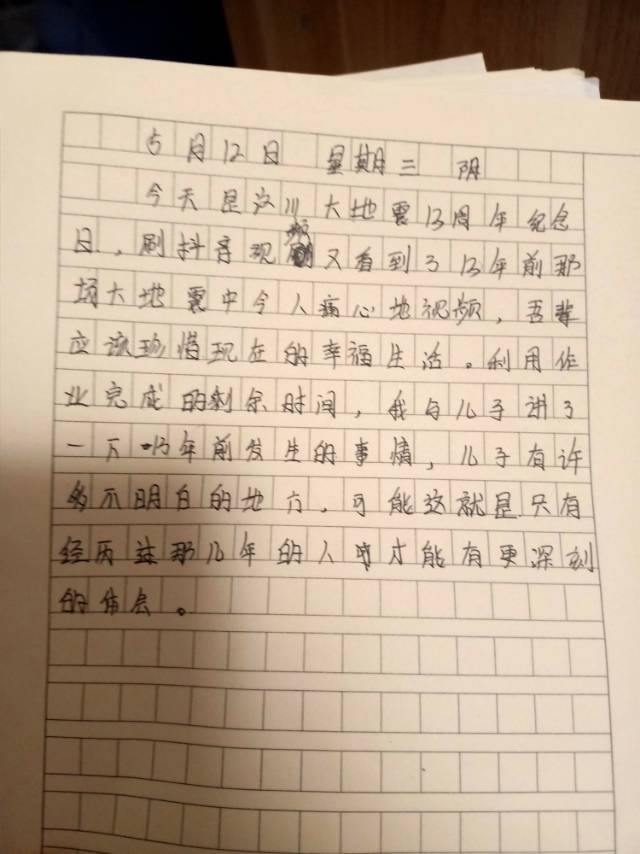 5月12日 星期三 阴
今天是汶川大地震13周年纪念
日，刷抖音视频又看到了13年前那
场大地震中令人痛心地视频，吾辈
应该珍惜现在的幸福生活。利用作
业完成的剩余时间，我与儿子讲了
一下13年前发生的事情，儿子有许
多不明白的地方。可能这就是只有
经历过那几年的人才能有更深刻
的体会。